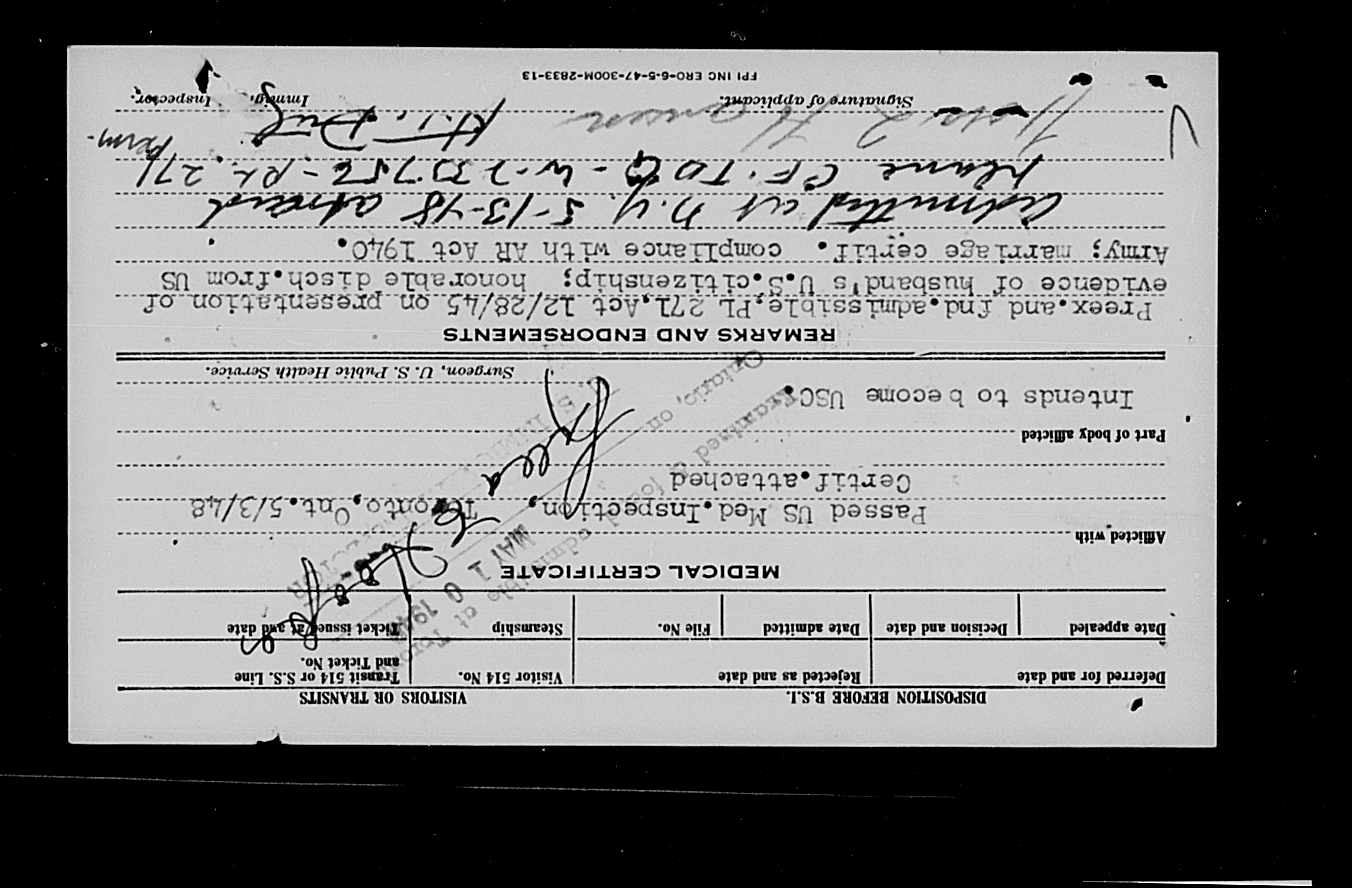 DISPOSITION BEFORE B.S.I. VISITORS OR TRANSITS
Deferred for and date Rejected as and date Visitor 514 No. Transit 514 or S.S. Line
and Ticket No.
Date appealed Decision and date Date admitted File No. Steamship Ticket issued at and date
MEDICAL CERTIFICATE
Afflicted with
Passed US Med.Inspection, Toronto,Ont.5/3/48
Certif.attached
Part of body afflicted
Intends to become USC.
Surgeon, U. S. Public Health Service.
Examined & found admissible at Toronto
Ontario, on MAY 10 1948
REMARKS AND ENDORSEMENTS
Preex.and fnd.admissible,PL 271,Act 12/28/45 on presentation of
evidence of husband's U.S.citizenship; honorable disch.from US
Army; marriage certif. compliance with AR Act 1940.
Admitted at N.Y. 5-13-48 aboard
plane CF-TOG - W-233756 - P.L. 271
Perm.
Signature of applicant. Immig. Inspector.
FPI INC ERO-6-5-47-300M-2833-13